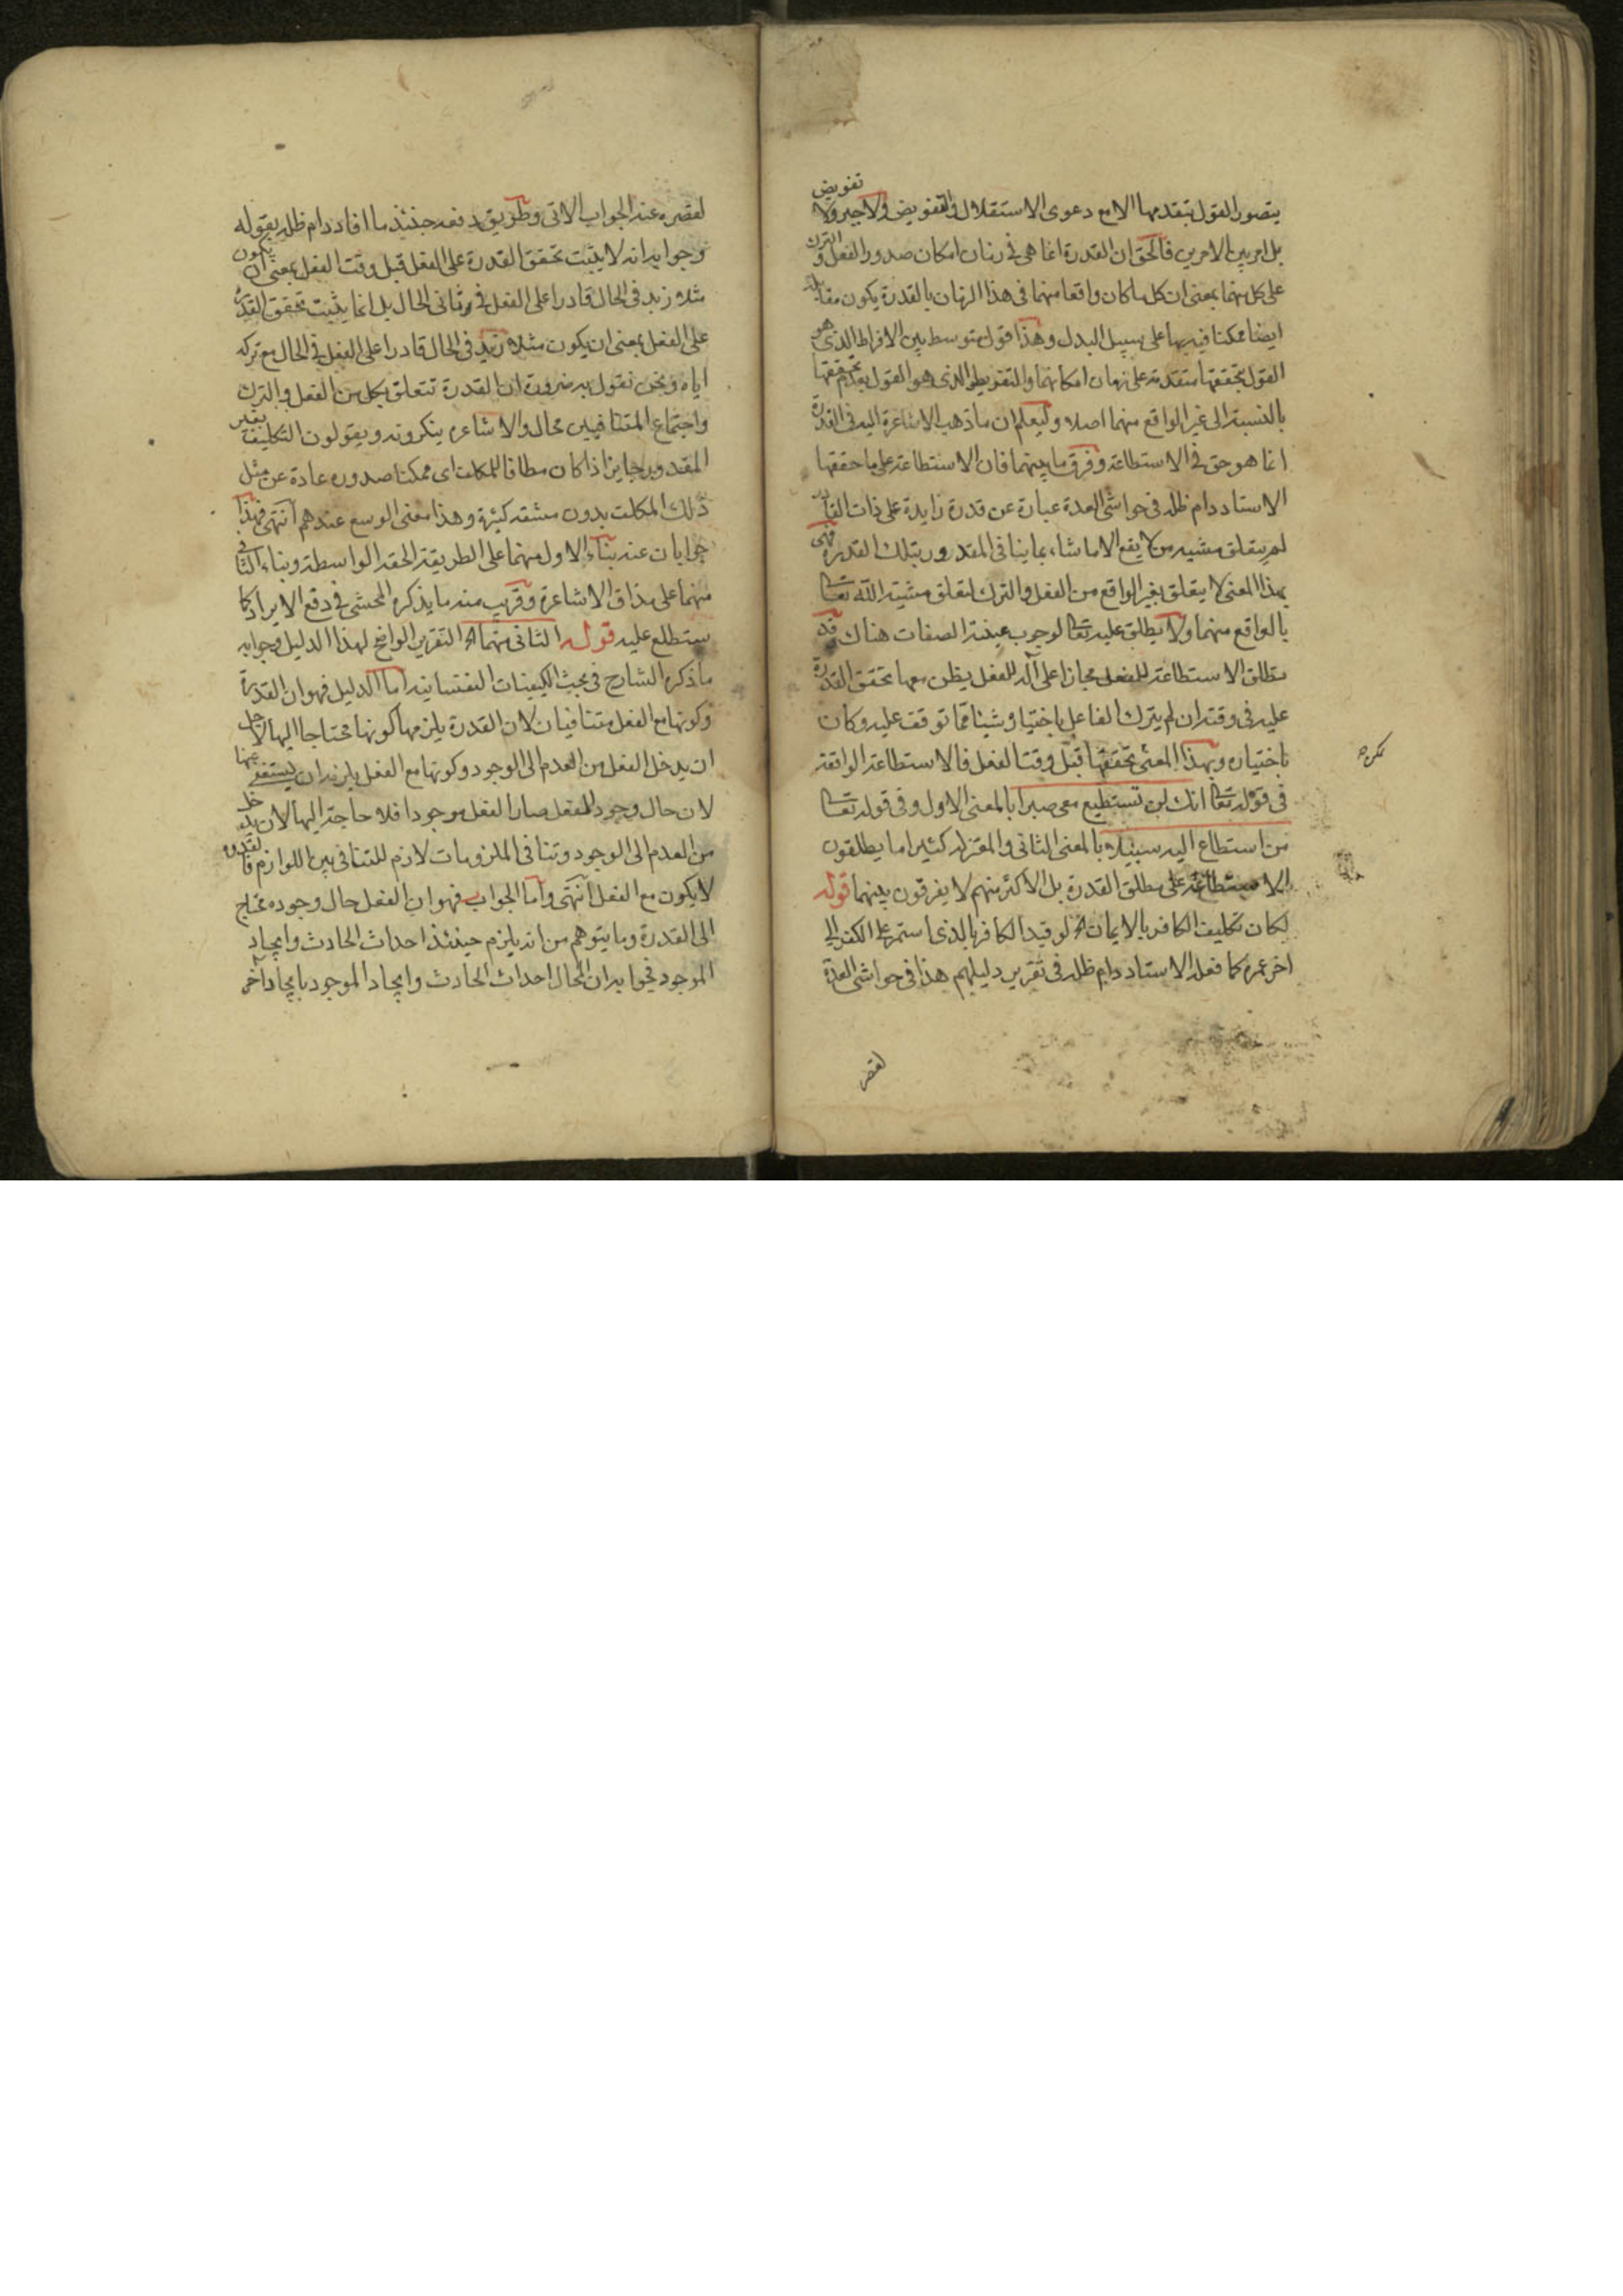 يتصور القول بتقدمها الا مع دعوى الاستقلال والتفويض ولا جبر ولا تفويض
بل امر بين الامرين فالحق ان القدرة انما هي في زمان امكان صدور الفعل والترك
على كل منهما بمعنى ان كل ما كان واقعا منهما في هذا الزمان بالقدرة يكون مقابله
ايضا ممكنا فيه بها على سبيل البدل وهذا قول متوسط بين الافراط الذي هو
القول بتحققها متقدمة على زمان امكانهما والتفريط الذي هو القول بعدم تحققها
بالنسبة الى غير الواقع منهما اصلا وليعلم ان ما ذهب الاشاعرة اليه في القدرة
انما هو حق في الاستطاعة وفرق ما بينهما فان الاستطاعة على ما حققها
الاستاد دام ظله في حواشي العدة عبارة عن قدرة زايدة على ذات القادر
لم يتعلق مشية من لا يقع الا ما شاء بما ينافي المقدور بتلك القدرة فهي
بهذا المعنى لا يتعلق بغير الواقع من الفعل والترك لتعلق مشية الله تعالى
بالواقع منهما ولا يطلق عليه تعالى لوجوب عينية الصفات هناك وقد
يطلق الاستطاعة للفعل مجازا على آلة للفعل يظن معها تحقق القدرة
عليه في وقته ان لم يترك الفاعل باختياره شيئا مما توقف عليه وكان
باختياره وبهذا المعنى تحققها قبل وقت الفعل فالاستطاعة الواقعة
في قوله تعالى انك لن تستطيع معي صبرا بالمعنى الاول وفي قوله تعالى
من استطاع اليه سبيلا بالمعنى الثاني والمعتزلة كثيرا ما يطلقون
الاستطاعة على مطلق القدرة بل الاكثر منهم لا يفرقون بينهما قوله
لكان تكليف الكافر بالايمان اه لو قيد الكافر بالذي استمر على الكفر الى
اخر عمره كما فعله الاستاد دام ظله في تقرير دليلهم هذا في حواشي العدة
لقصره عنه الجواب الاتي وطريق دفعه حينئذ ما افاد دام ظله بقوله
وجوابه انه لا يثبت تحقق القدرة على الفعل قبل وقت الفعل بمعنى ان يكون
مثلا زيد في الحال قادرا على الفعل في ثاني الحال بل انما يثبت تحقق القدرة
على الفعل بمعنى ان يكون مثلا زيد في الحال قادرا على الفعل في الحال مع تركه
اياه ونحن نقول به ضرورة ان القدرة تتعلق بكل من الفعل والترك
واجتماع المتنافيين محال والاشاعرة ينكرونه ويقولون التكليف بغير
المقدور جايز اذا كان مطاقا للمكلف اى ممكنا صدوره عادة عن مثل
ذلك المكلف بدون مشقة كثيرة وهذا معنى الوسع عندهم انتهى فهذا
جوابان عنه بناء الاول منهما على الطريقة الحقة الواسطة وبناء الثاني
منهما على مذاق الاشاعرة وقريب منه ما يذكره المحشي في دفع الايراد كما
ستطلع عليه قوله الثاني منهما اه التقرير الواضح لهذا الدليل وجوابه
ما ذكره الشارح في بحث الكيفيات النفسانية اما الدليل فهو ان القدرة
وكونها مع الفعل متنافيان لان القدرة يلزمها كونها محتاجا اليها لاجل
ان يدخل الفعل من العدم الى الوجود وكونها مع الفعل يلزمه ان يستغنى عنها
لان حال وجود الفعل صار الفعل موجودا فلا حاجة اليها لان يدخل
من العدم الى الوجود وتنافي الملزومات لازم للتنافي بين اللوازم فالقدرة
لا يكون مع الفعل انتهى واما الجواب فهو ان الفعل حال وجوده محتاج
الى القدرة وما يتوهم من انه يلزم حينئذ احداث الحادث وايجاد
الموجود فجوابه ان المحال احداث الحادث وايجاد الموجود بايجاد آخر
لقصر